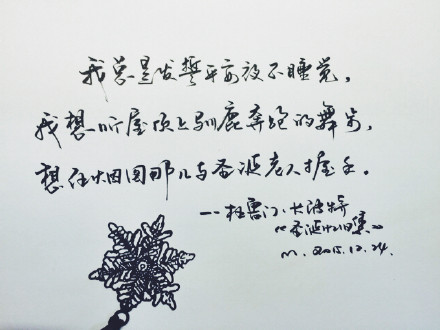 我总是发誓平安夜不睡觉，
我想听屋顶上驯鹿奔跑的舞步，
想在烟囱那儿与圣诞老人握手。
——杜鲁门·卡波特
《圣诞忆旧集》
M. 2015.12.24.